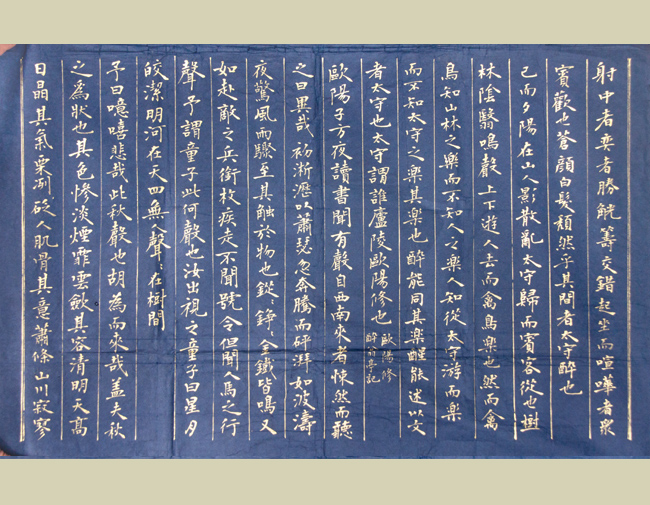 射中者奕者勝觥籌交錯起坐而喧嘩者衆
賓歡也蒼顏白髮頹然乎其間者太守醉也
已而夕陽在山人影散亂太守歸而賓客從也樹
林陰翳鳴聲上下遊人去而禽鳥樂也然而禽
鳥知山林之樂而不知人之樂人知從太守游而樂
而不知太守之樂其樂也醉能同其樂醒能述以文
者太守也太守謂誰廬陵歐陽修也
歐陽修
醉翁亭記
歐陽子方夜讀書聞有聲自西南來者悚然而聽
之曰異哉初淅瀝以蕭瑟忽奔騰而砰湃如波濤
夜驚風雨驟至其触於物也鏦〻錚〻金鐵皆鳴又
如赴敵之兵銜枚疾走不聞號令但聞人馬之行
聲予謂童子此何聲也汝出視之童子曰星月
皎潔明河在天四無人聲〻在樹間
予曰噫嘻悲哉此秋聲也胡為而來哉盖夫秋
之為狀也其色慘淡煙霏雲斂其容清明天高
日晶其氣栗冽砭人肌骨其意蕭條山川寂寥